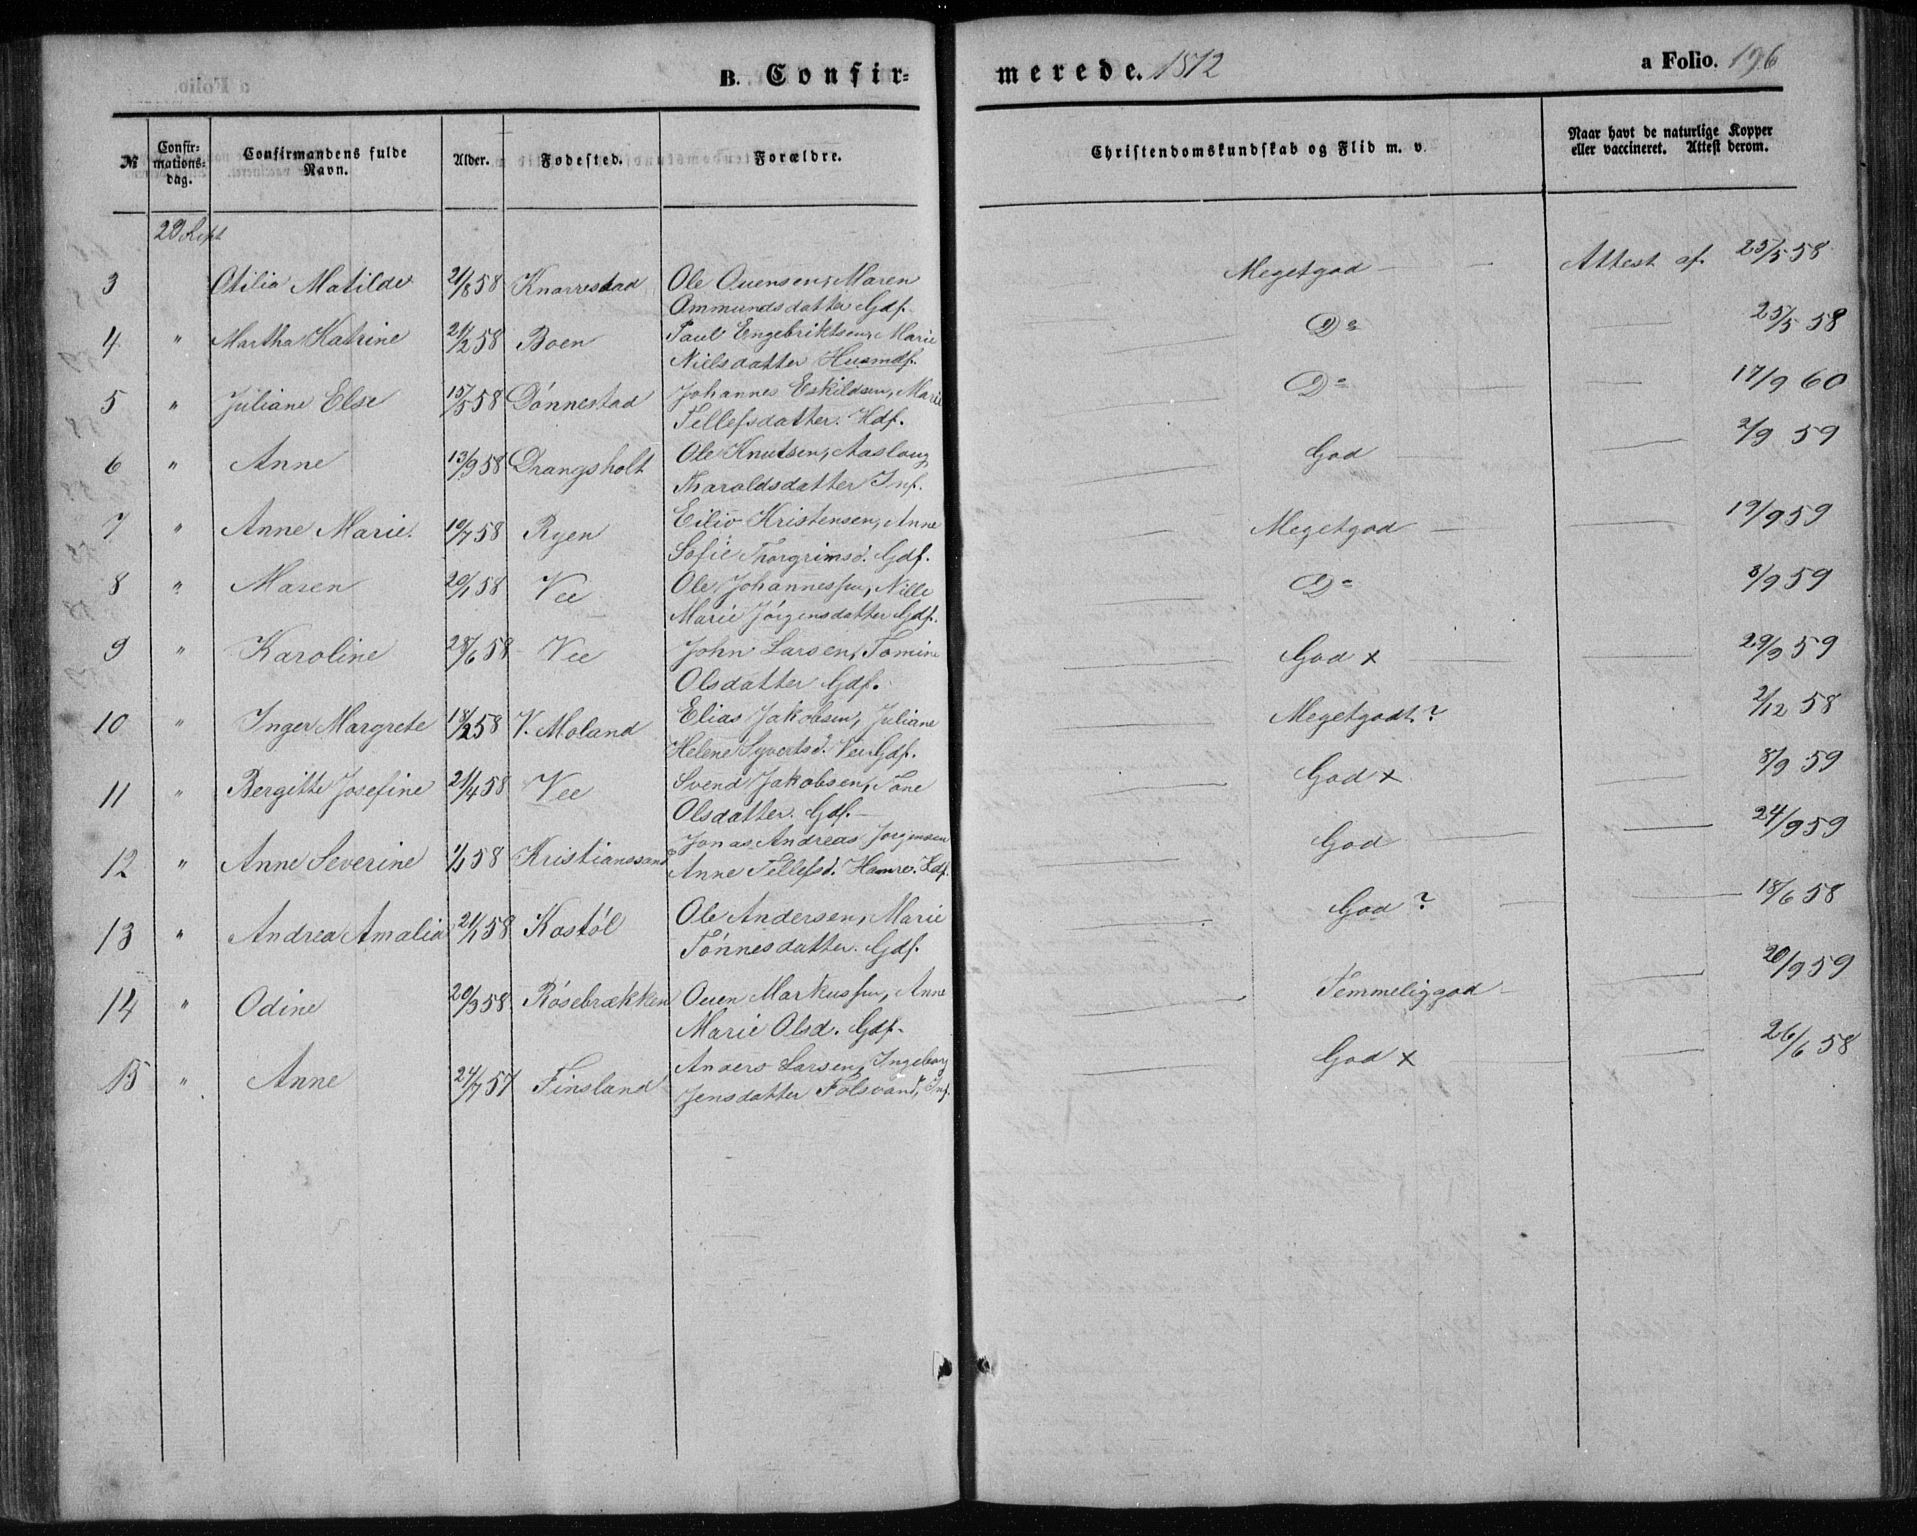 B. Confir= merede. 1872 a Folio. 196
№ Confir-mations-dag. Confirmandens fulde Navn. Alder. Fødested. Forældre. Christendomskundskab og Flid m. v. Naar havt de naturlige Kopper eller vaccineret. Attest derom.
29 Sept
3 Otilia Matilde 21/8 58 Knarrestad Ole Ouensen, Maren Meget god Attest af. 25/5 58
Ommundsdatter Gdf.
4 " Martha Katrine 21/2 58 Boen Paul Engebriktsen, Marie Do 25/5 58
Nielsdatter Husmdf.
5 " Juliane Else 15/5 58 Dønnestad Johannes Eskildsen, Marie Do 17/9 60
Tellefsdatter. Hdf.
6 " Anne 13/9 58 Drangsholt Ole Knutsen, Aaslaug God 2/9 59
Tharaldsdatter Inf.
7 " Anne Marie. 10/7 58 Ryen Eiliv Kristensen, Anne Meget god 19/9 59
Sofie Thorgrimsd. Gdf.
8 " Maren 20/1 58 Vee Ole Johannessen, Nille Do 8/9 59
Marie Jørgensdatter Gdf.
9 " Karoline 28/6 58 Vee John Larsen, Tomine God x 29/9 59
Olsdatter Gdf.
10 " Inger Margrete 18/2 58 V. Moland Elias Jakobsen, Juliane Meget godt? 2/12 58
Helene Syvertsd. Vee Gdf.
11 " Bergitte Josefine 21/4 58 Vee Svend Jakobsen, Tone God x 8/9 59
Olsdatter. Gdf.
12 " Anne Severine 1/1 58 Kristianssand Jonas Andreas Jørgensen God 24/9 59
Anne Tellefsd. Hamre. Hdf.
13 " Andrea Amalia 21/1 58 Kostøl Ole Andersen, Marie God ? 18/6 58
Tønnesdatter. Gdf.
14 " Odine 20/9 58 Røsebrækken Ouen Markussen, Anne Temmelig god 20/9 59
Marie Olsd. Gdf.
15 " Anne 24/7 57 Finsland Anders Larsen, Ingeborg God x 26/6 58
Jensdatter Folsvand, Inf.